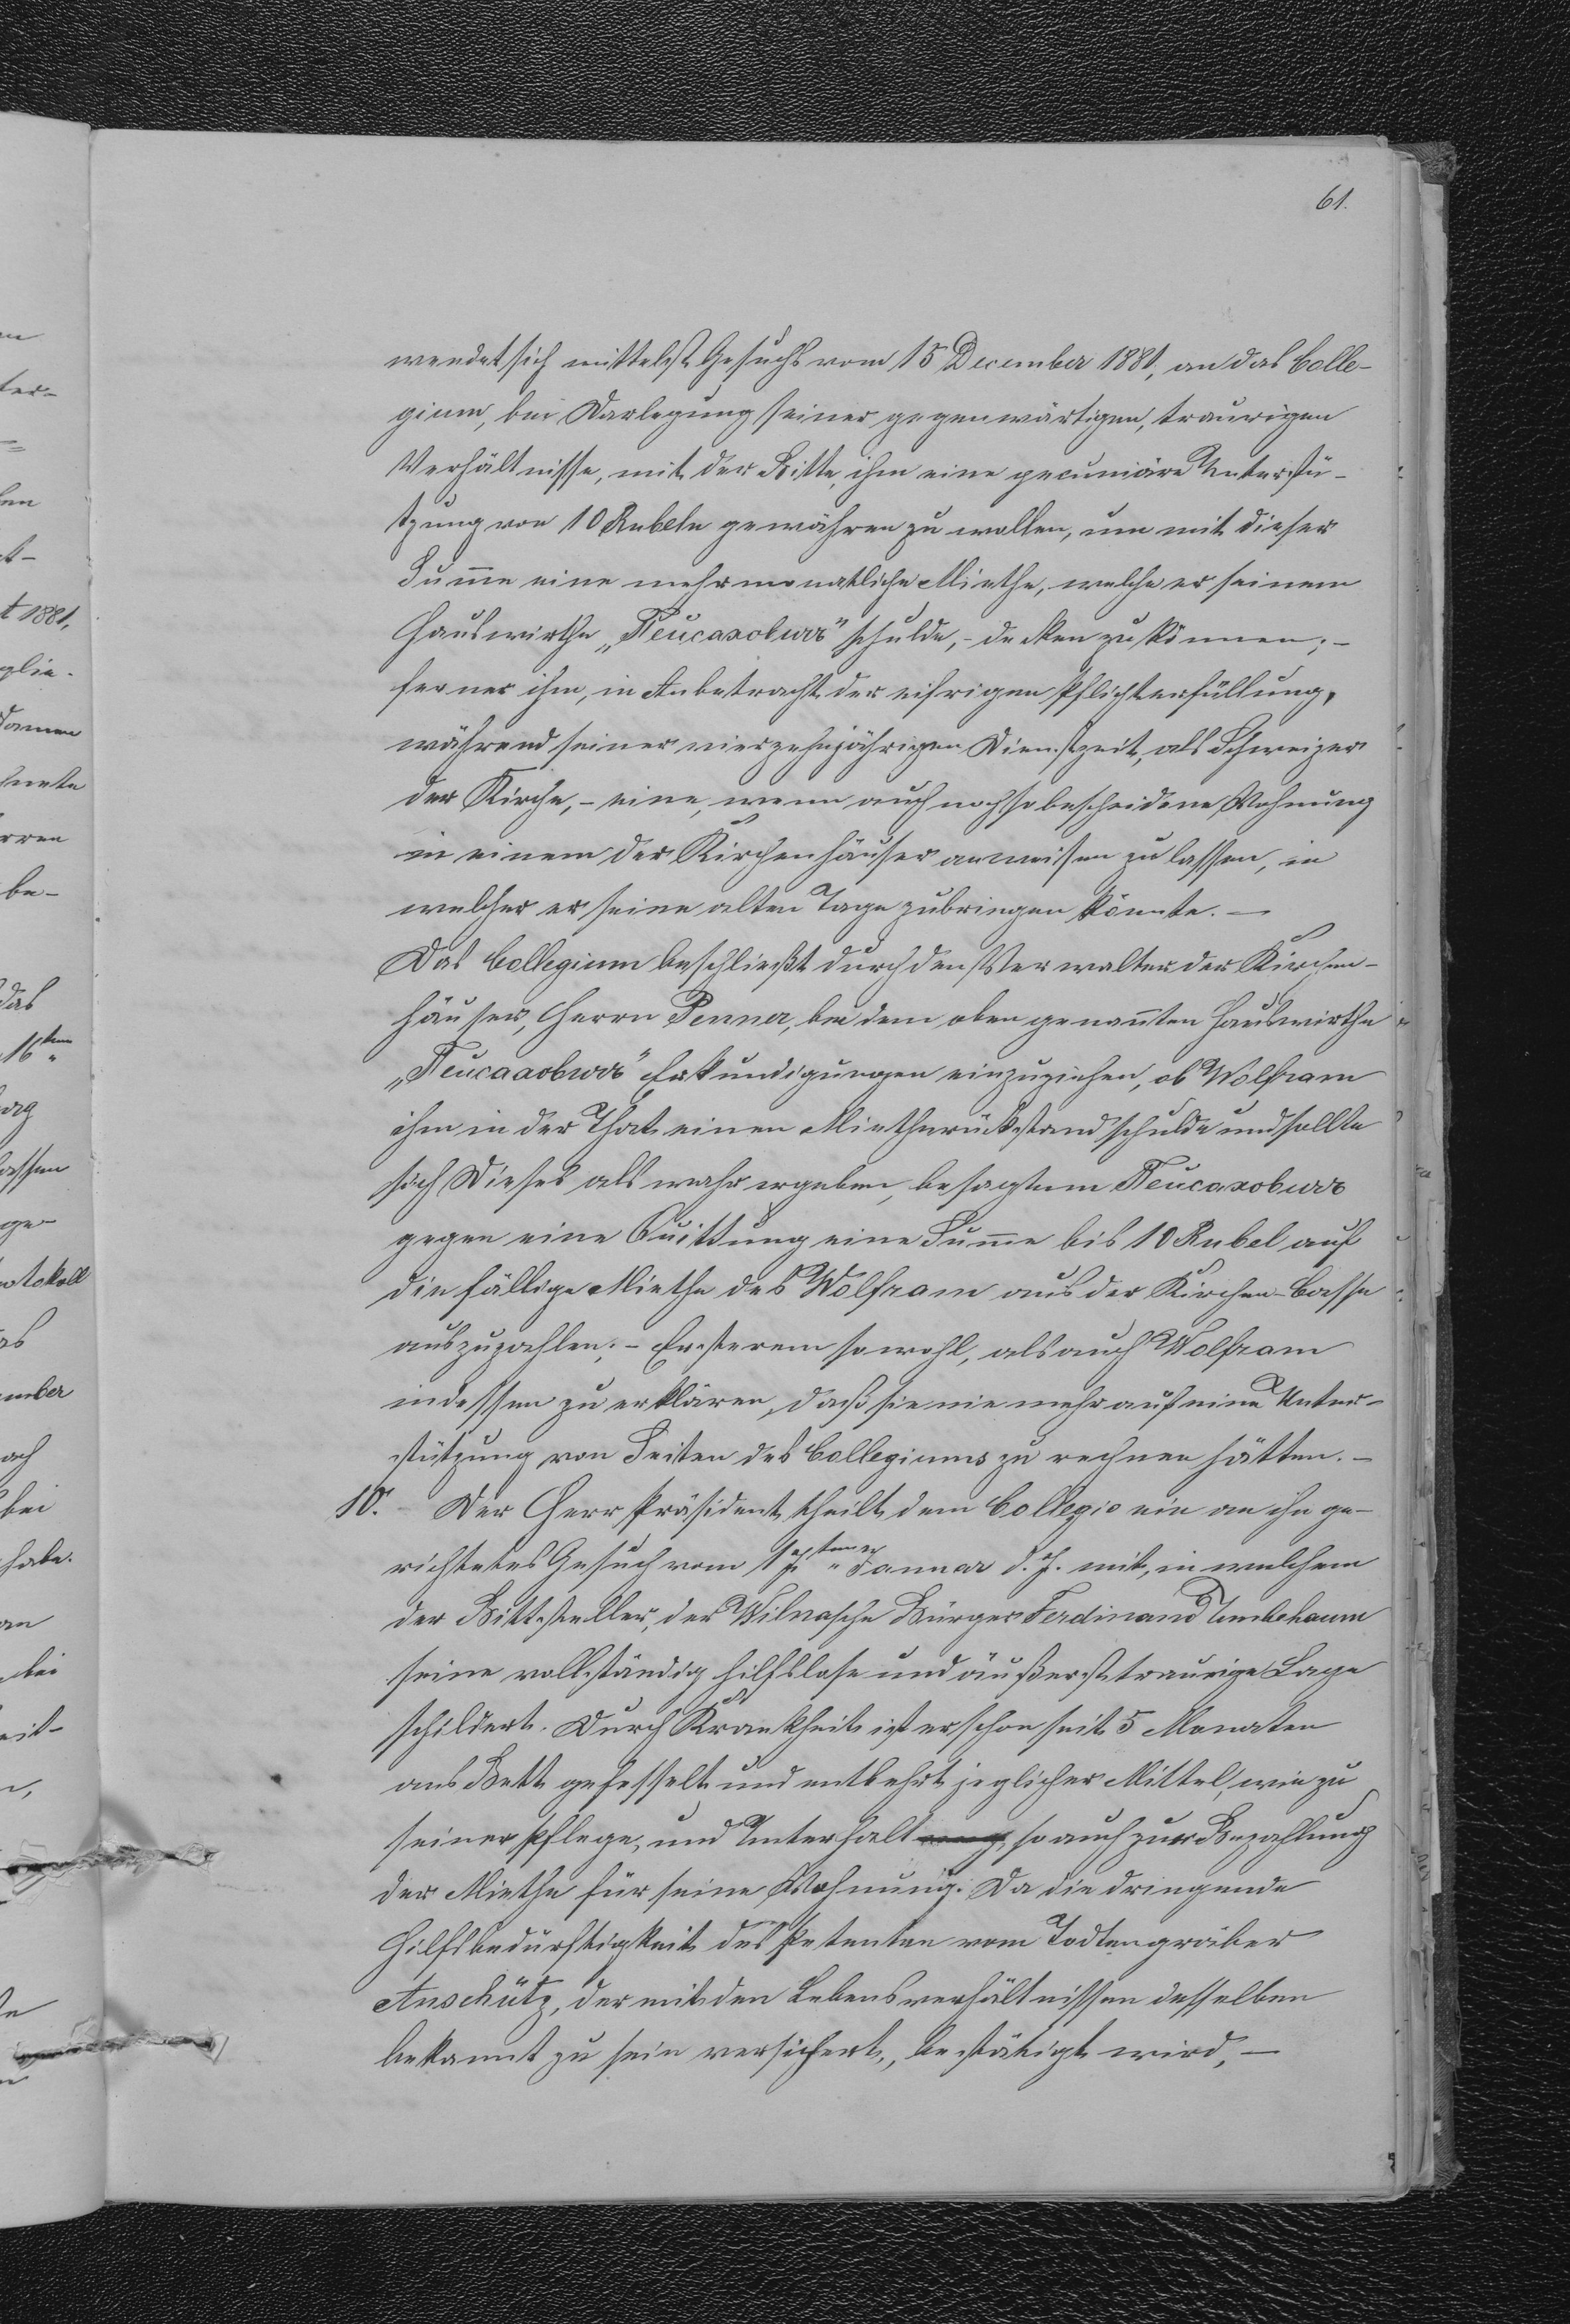 61.
wendet sich mittelst Gesuchs vom 15 December 1881, an das Colle-
gium, bei Darlegung seiner gegenwärtigen, traurigen
Verhältnisse, mit der Bitte, ihm eine pecuniäre Unterstü-
tzung von 10 Rubeln gewähren zu wollen, um mit dieser
Summe eine mehrmonatliche Miethe, welche er seinem
Hauswirthe „Пейсаховичъ" schulde, - decken zu können; -
ferner ihm, in Anbetracht der eifrigen Pflichterfüllung,
während seiner vierzehnjährigen Dienstzeit, als Schweizer
der Kirche, - eine, wenn auch noch so bescheidene Wohnung
in einem der Kirchenhäuser anweisen zu lassen, in
welcher er seine alten Tage zubringen könnte. —
Das Collegium beschließt durch den Verwalter der Kirchen-
häuser, Herrn Penner, bei dem oben genannten Hauswirthe
„Пейсаховичъ" Erkundigungen einzuziehen, ob Wolfram
ihm in der That einen Miethrückstand schulde und sollte
sich Dieses als wahr ergeben, besagtem Пейсаховичъ
gegen eine Quittung eine Summe bis 10 Rubel auf
die fällige Miethe des Wolfram aus der Kirchen-Casse
auszuzahlen; - Ersterem sowohl, als auch Wolfram
indessen zu erklären, daß sie nie mehr auf eine Unter-
stützung von Seiten des Collegiums zu rechnen hätten. -
10. - Der Herr Präsident theilt dem Collegio ein an ihn ge-
richtetes Gesuch vom Januar d. J. mit, in welchem
der Bittsteller, der Wilnasche Bürger Ferdinand Umbehaum
seine vollständig hilflose und äußerst traurige Lage
schildert. Durch Krankheit ist er schon seit 5 Monaten
ans Bett gefesselt und entbehrt jeglicher Mittel, wie zu
seiner Pflege, und Unterhalt so auch zur Bezahlung
der Miethe für seine Wohnung. Da die dringende
Hilfsbedürftigkeit des Petenten vom Todtengräber
Anschütz, der mit den Lebensverhältnissen desselben
bekannt zu sein versichert, bestätigt wird, —